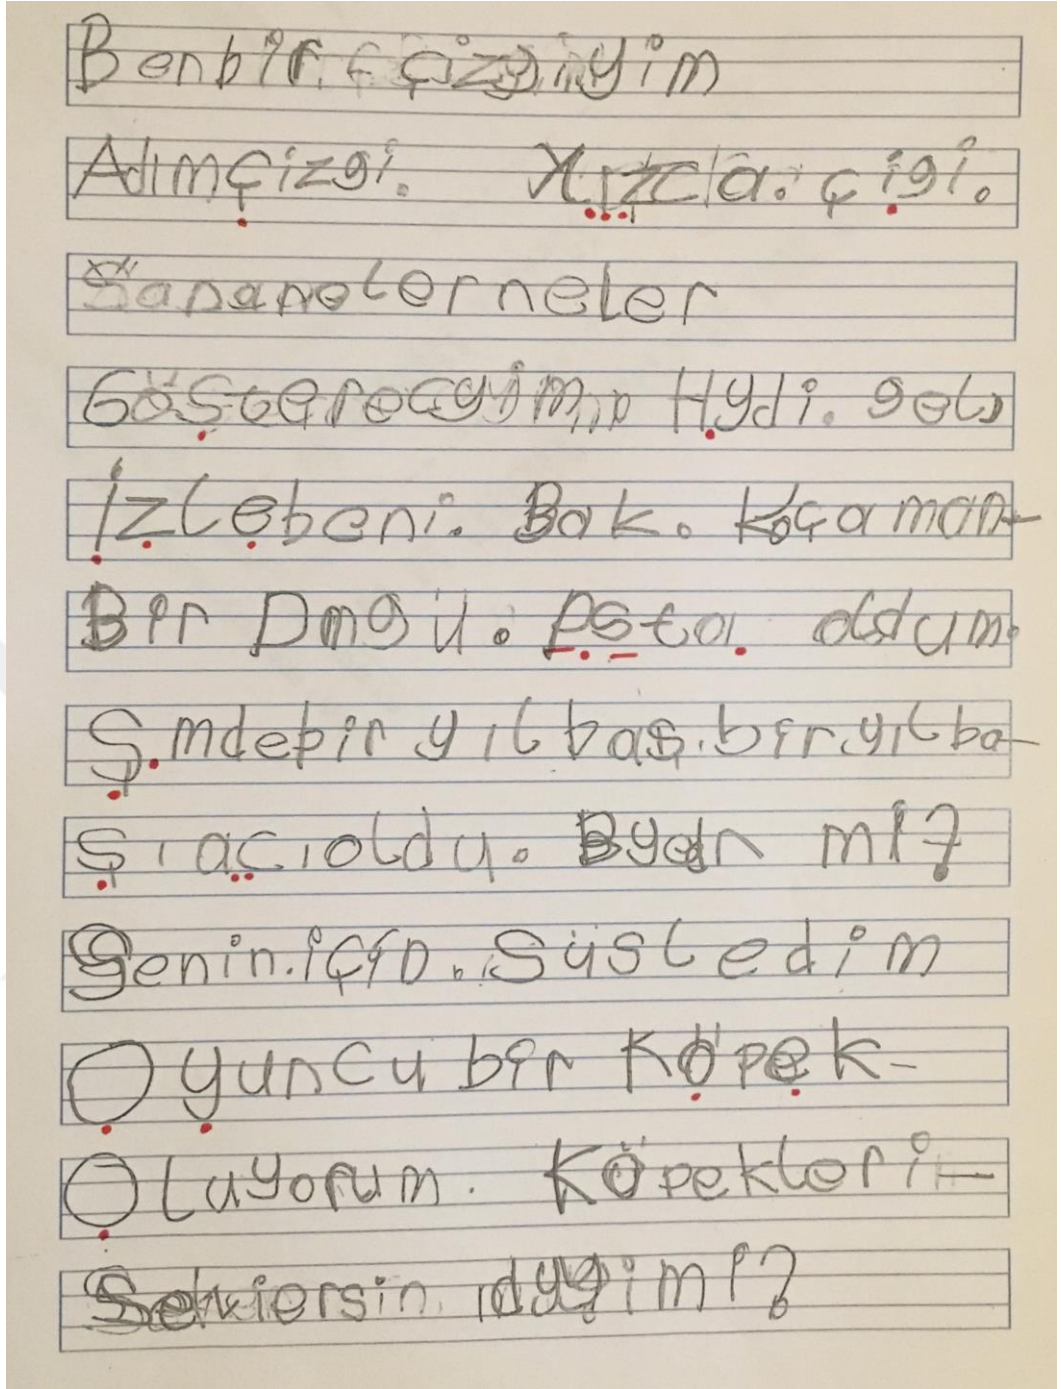 Benbir çizgiyim
Adımçizgi. Xızcla. çigi.
Sananelerneler
Göstereceyim Hydi. gel
İzlebeni. Bak. Koçaman-
Bir Dmgü. Psta. oldum.
Ş.mdebir yılbaş.bir.yılba-
şıaçıoldu. Byedn mi?
Senin.için. Süsledim
Oyuncu bir Köpek-
Oluyorum. Köpekleri-
Sekiersin dygimi?